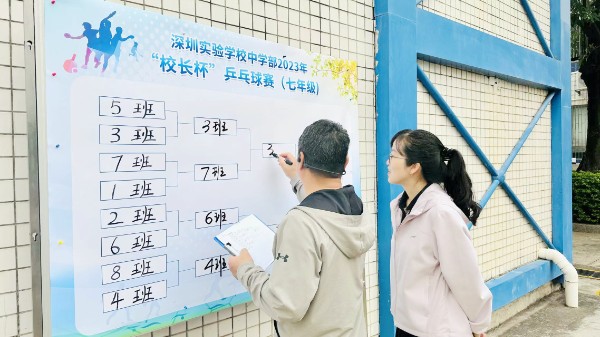 深圳实验学校中学部2023年
“校长杯”乒乓球赛（七年级）
5 班
3 班
7 班
1 班
2 班
6 班
8 班
4 班
3班
7班
6班
4班
3